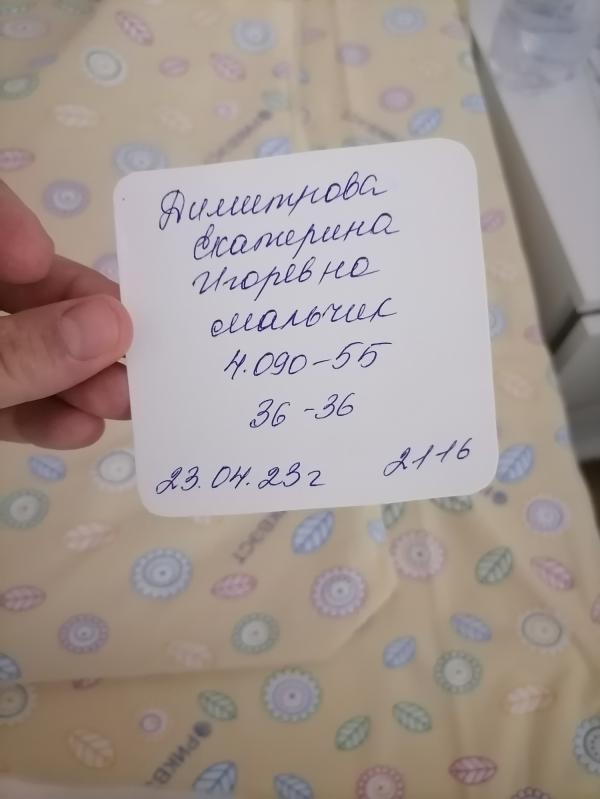 Димитрова
Екатерина
Игоревна
мальчик
4.090-55
36-36
23.04.23г 2116
РИКВЭСТ